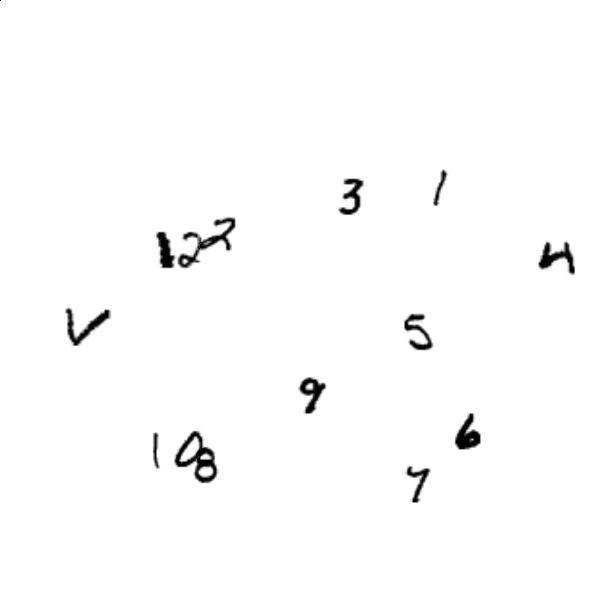 3 1
12 2
4
11 5
9
6
10 8
7